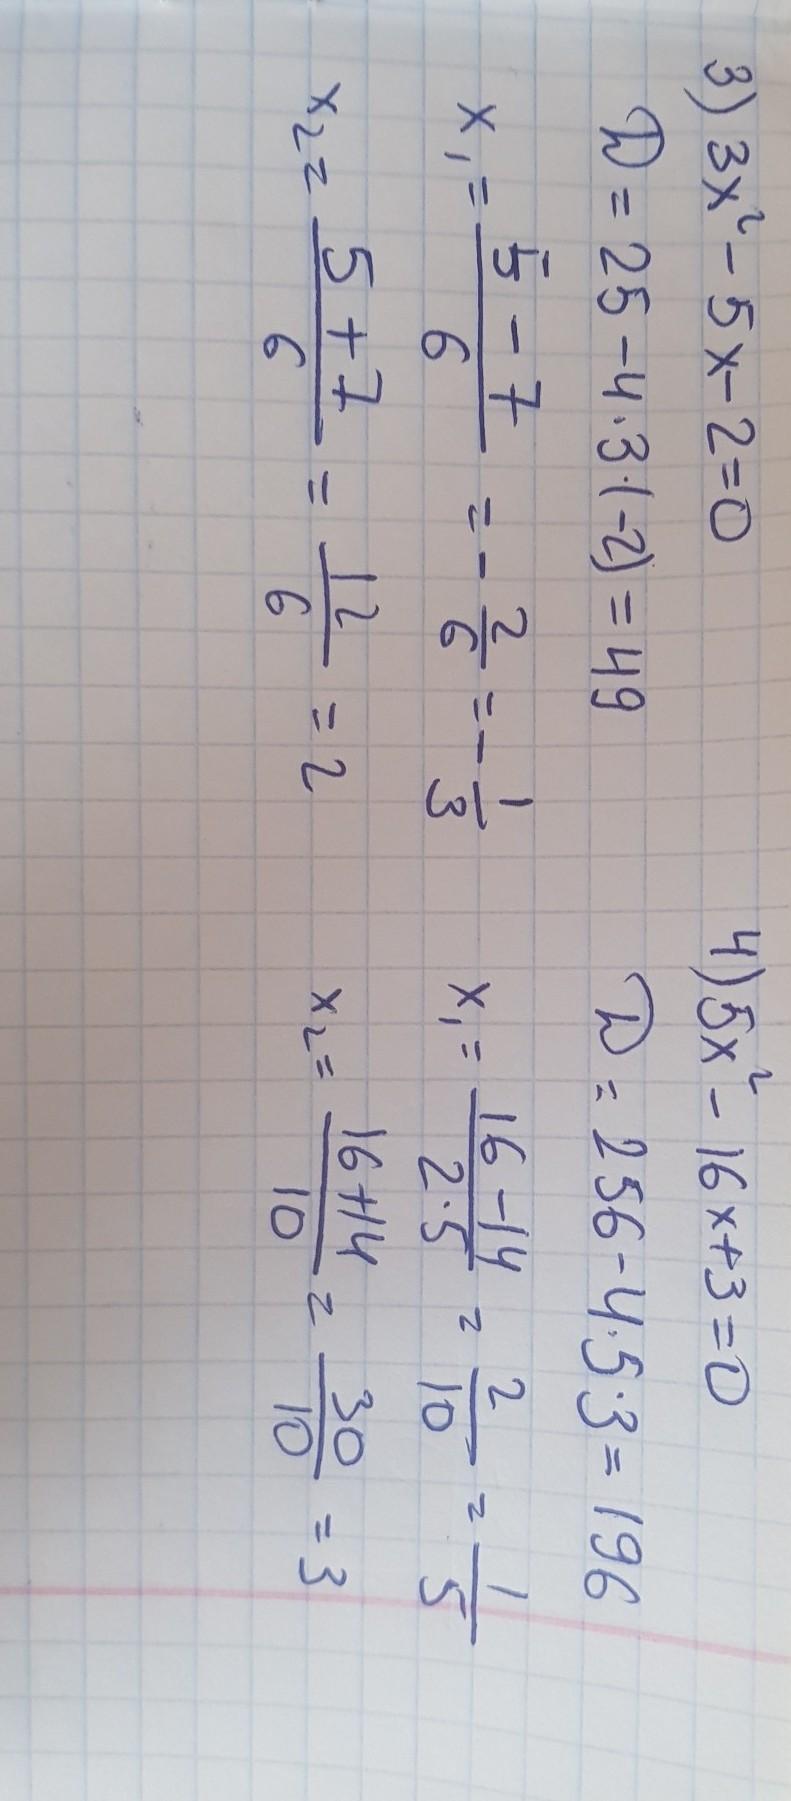 3) 3x² - 5x - 2 = 0
D = 25 - 4·3·(-2) = 49
x₁ = (5 - 7)/6 = - 2/6 = - 1/3
x₂ = (5 + 7)/6 = 12/6 = 2
4) 5x² - 16x + 3 = 0
D = 256 - 4·5·3 = 196
x₁ = (16 - 14)/(2·5) = 2/10 = 1/5
x₂ = (16 + 14)/10 = 30/10 = 3